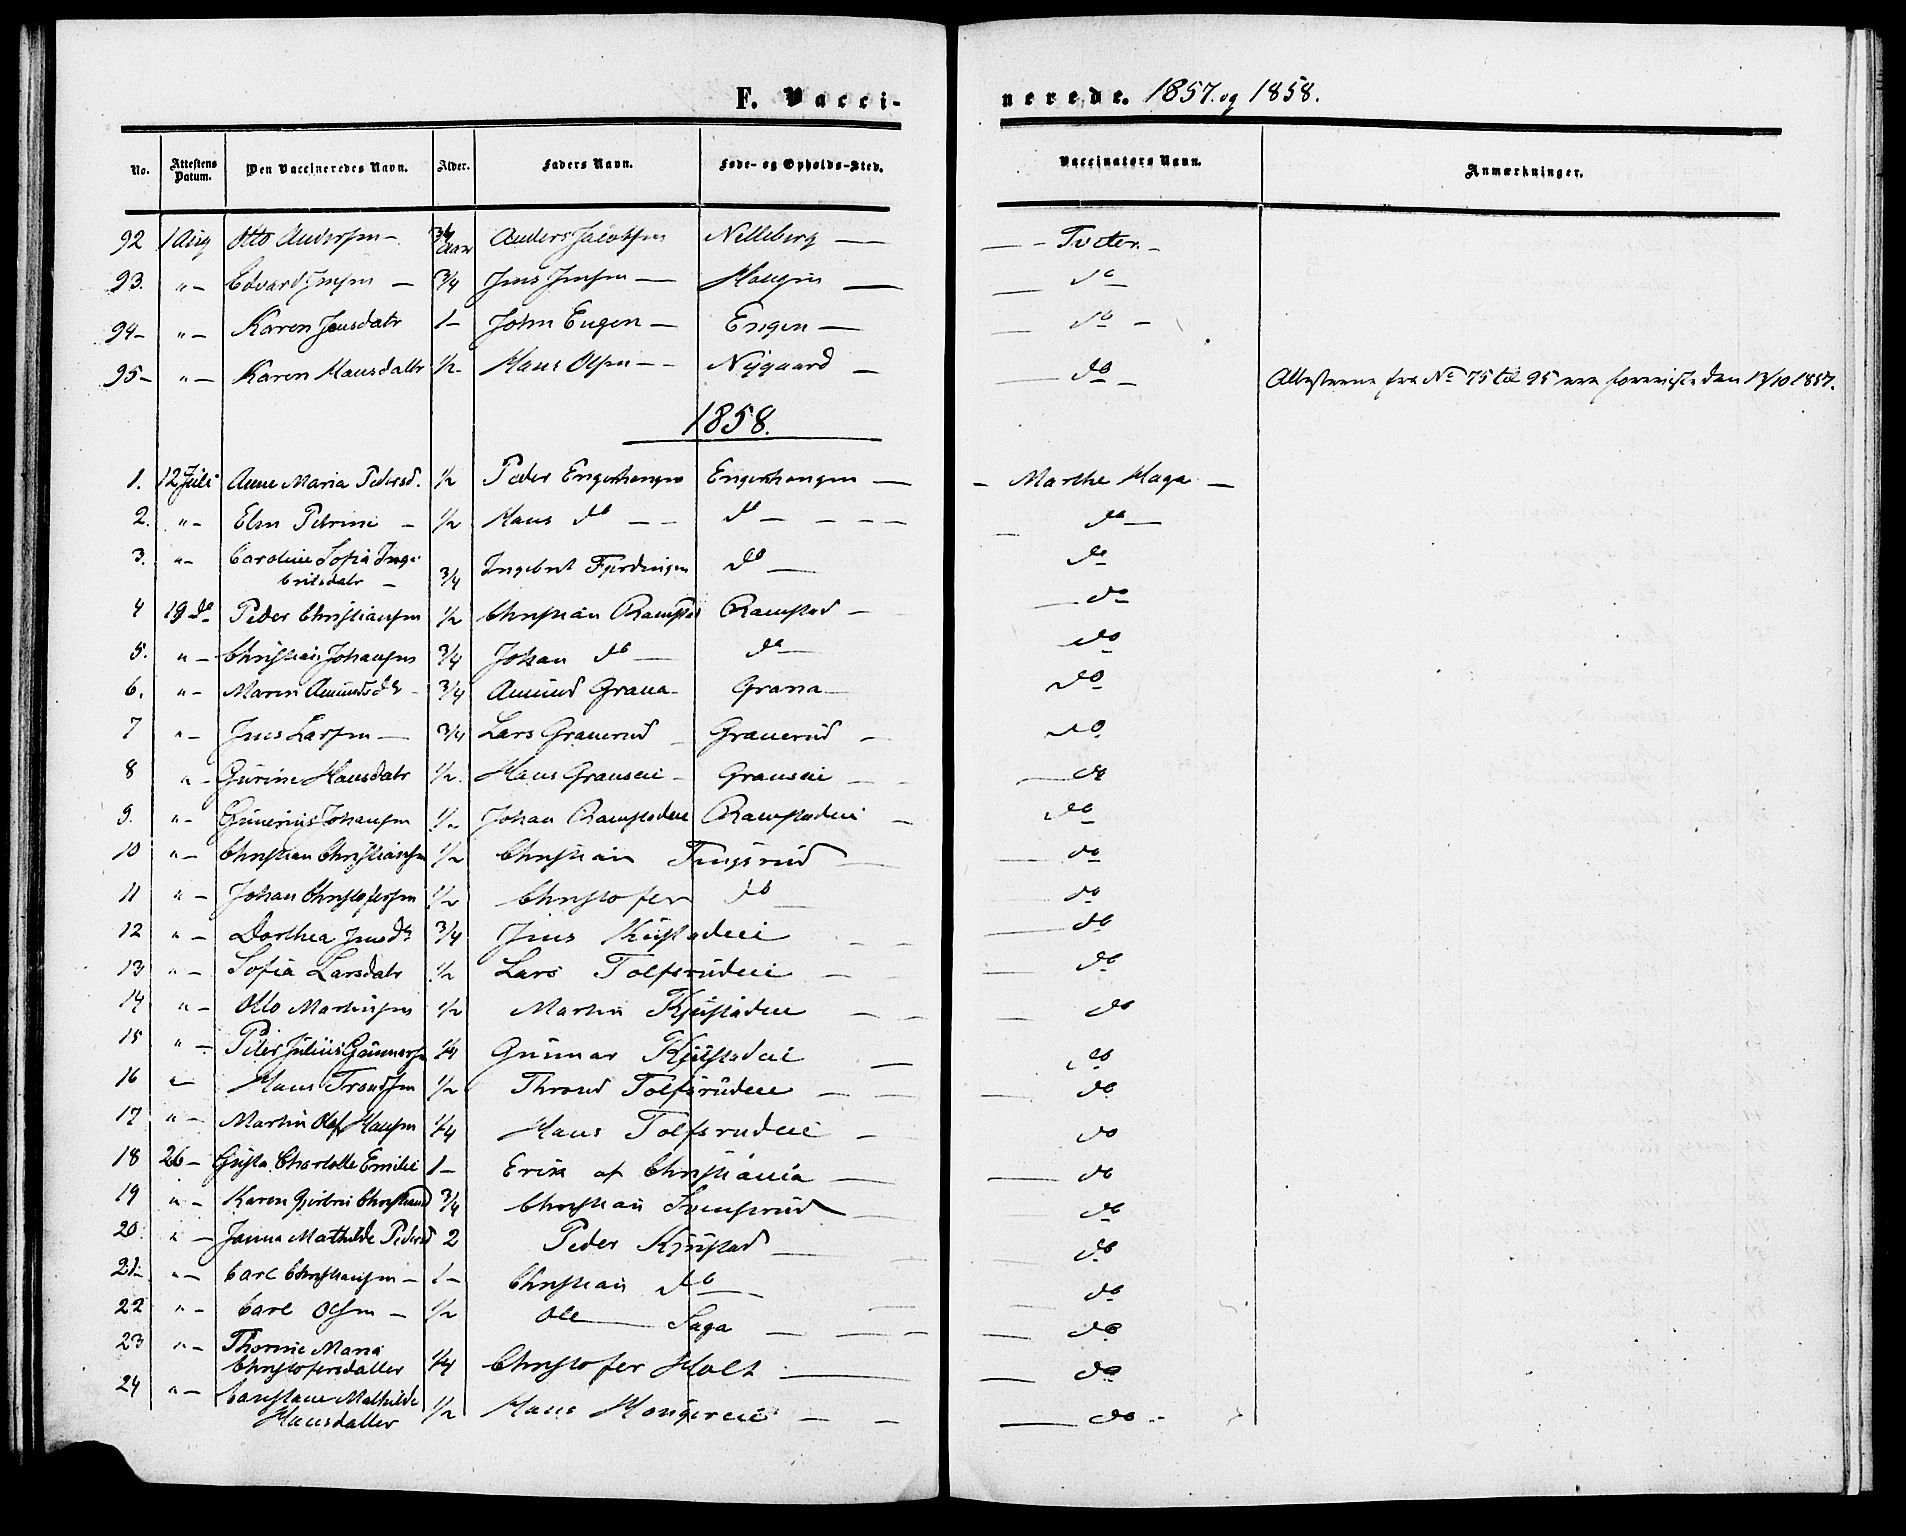 F. Vacci- nerede. 1857. og 1858.
No. Attestens Datum. Den Vaccineredes Navn. Alder. Faders Navn. Føde- og Opholds-Sted. Vaccinators Navn. Anmærkninger.
92 1 Aug Otto Andersen - 3/4 Aar Anders Jacobsen Nelleberg — — - Tveter -
93. " - Edvard Jensen — 3/4 Jens Jensen — Haugen — — do
94 - " - Karen Jensdatr 1 - John Engen — Engen — — do -
95 - " - Karen Hansdattr 1/2 - Hans Olsen - - Nygaard — — do - Attesterne fra No 75 til 95 ere den 13/10 1857.
1858.
1. 12 Juli Anne Maria Pedersd. 1/2 Peder Engerhengen Engerhengen — - Marthe Haga —
2. " - Elen Petrine - 1/2 Hans do - - do - - - - — do —
3. " - Caroline Sofia Inge-
britsdatr - 3/4 Ingebret Fjerdingen do — do
4 19 do Peder Christiansen 1/2 Christian Ramstad Ramstad - — do
5. " - Christian Johansen 3/4 Johan do — do - do
6. " - Maren Amundsdtr - 3/4 Amund Grana - Grana - do
7 " - Jens Larsen — 3/4 Lars Granerud - Granerud - do
8 " - Gurine Hansdatr 1/2. Hans Granseie - Granseie - - — do
9. " - Gunerius Johansen 1/2 Johan Ramstadeie Ramstadeie - do
10 " - Christian Christiansen 1/2 Christian Tingsrud — — do
11 " - Johan Christofersen 1/2 Christofer do — — do
12 " - Dorthea Jensdtr 3/4 Jens Kjustadeie - - — do
13 " - Sofia Larsdatr 1/2 Lars Tolfsrudeie - - — do
14 " - Otto Martinsen 1/2 Martin Kjustadeie - - — do
15 " - Peter Julius Gunnersen 1/4 Gunnar Kjustadeie — do
16 " - Hans Trondsen 1/2 Thrond Tolfsrudeie - - — do
17. " - Martin Olaf Hansen 1/4 Hans Tolfsrudeie - do
18 26 - Gusta Charlotte Emilie 1 - Erik af Christiania - — do
19 " - Karen Christiansd 3/4 Christian Svensrud — do
20. " - Janna Mathilde Pedersd 2 Peder Kjustad — - do
21 - " - Carl Christiansen - 1 - Christian do — — do
22 " - Carl Olsen - 1/2 Ole — Saga - - - — do
23 " - Thorine Maria
Christofersdatter 1/4 Christofer Holt — — do
24 " - Constance Mathilde
Hansdatter 1/2 Hans - - — do - -